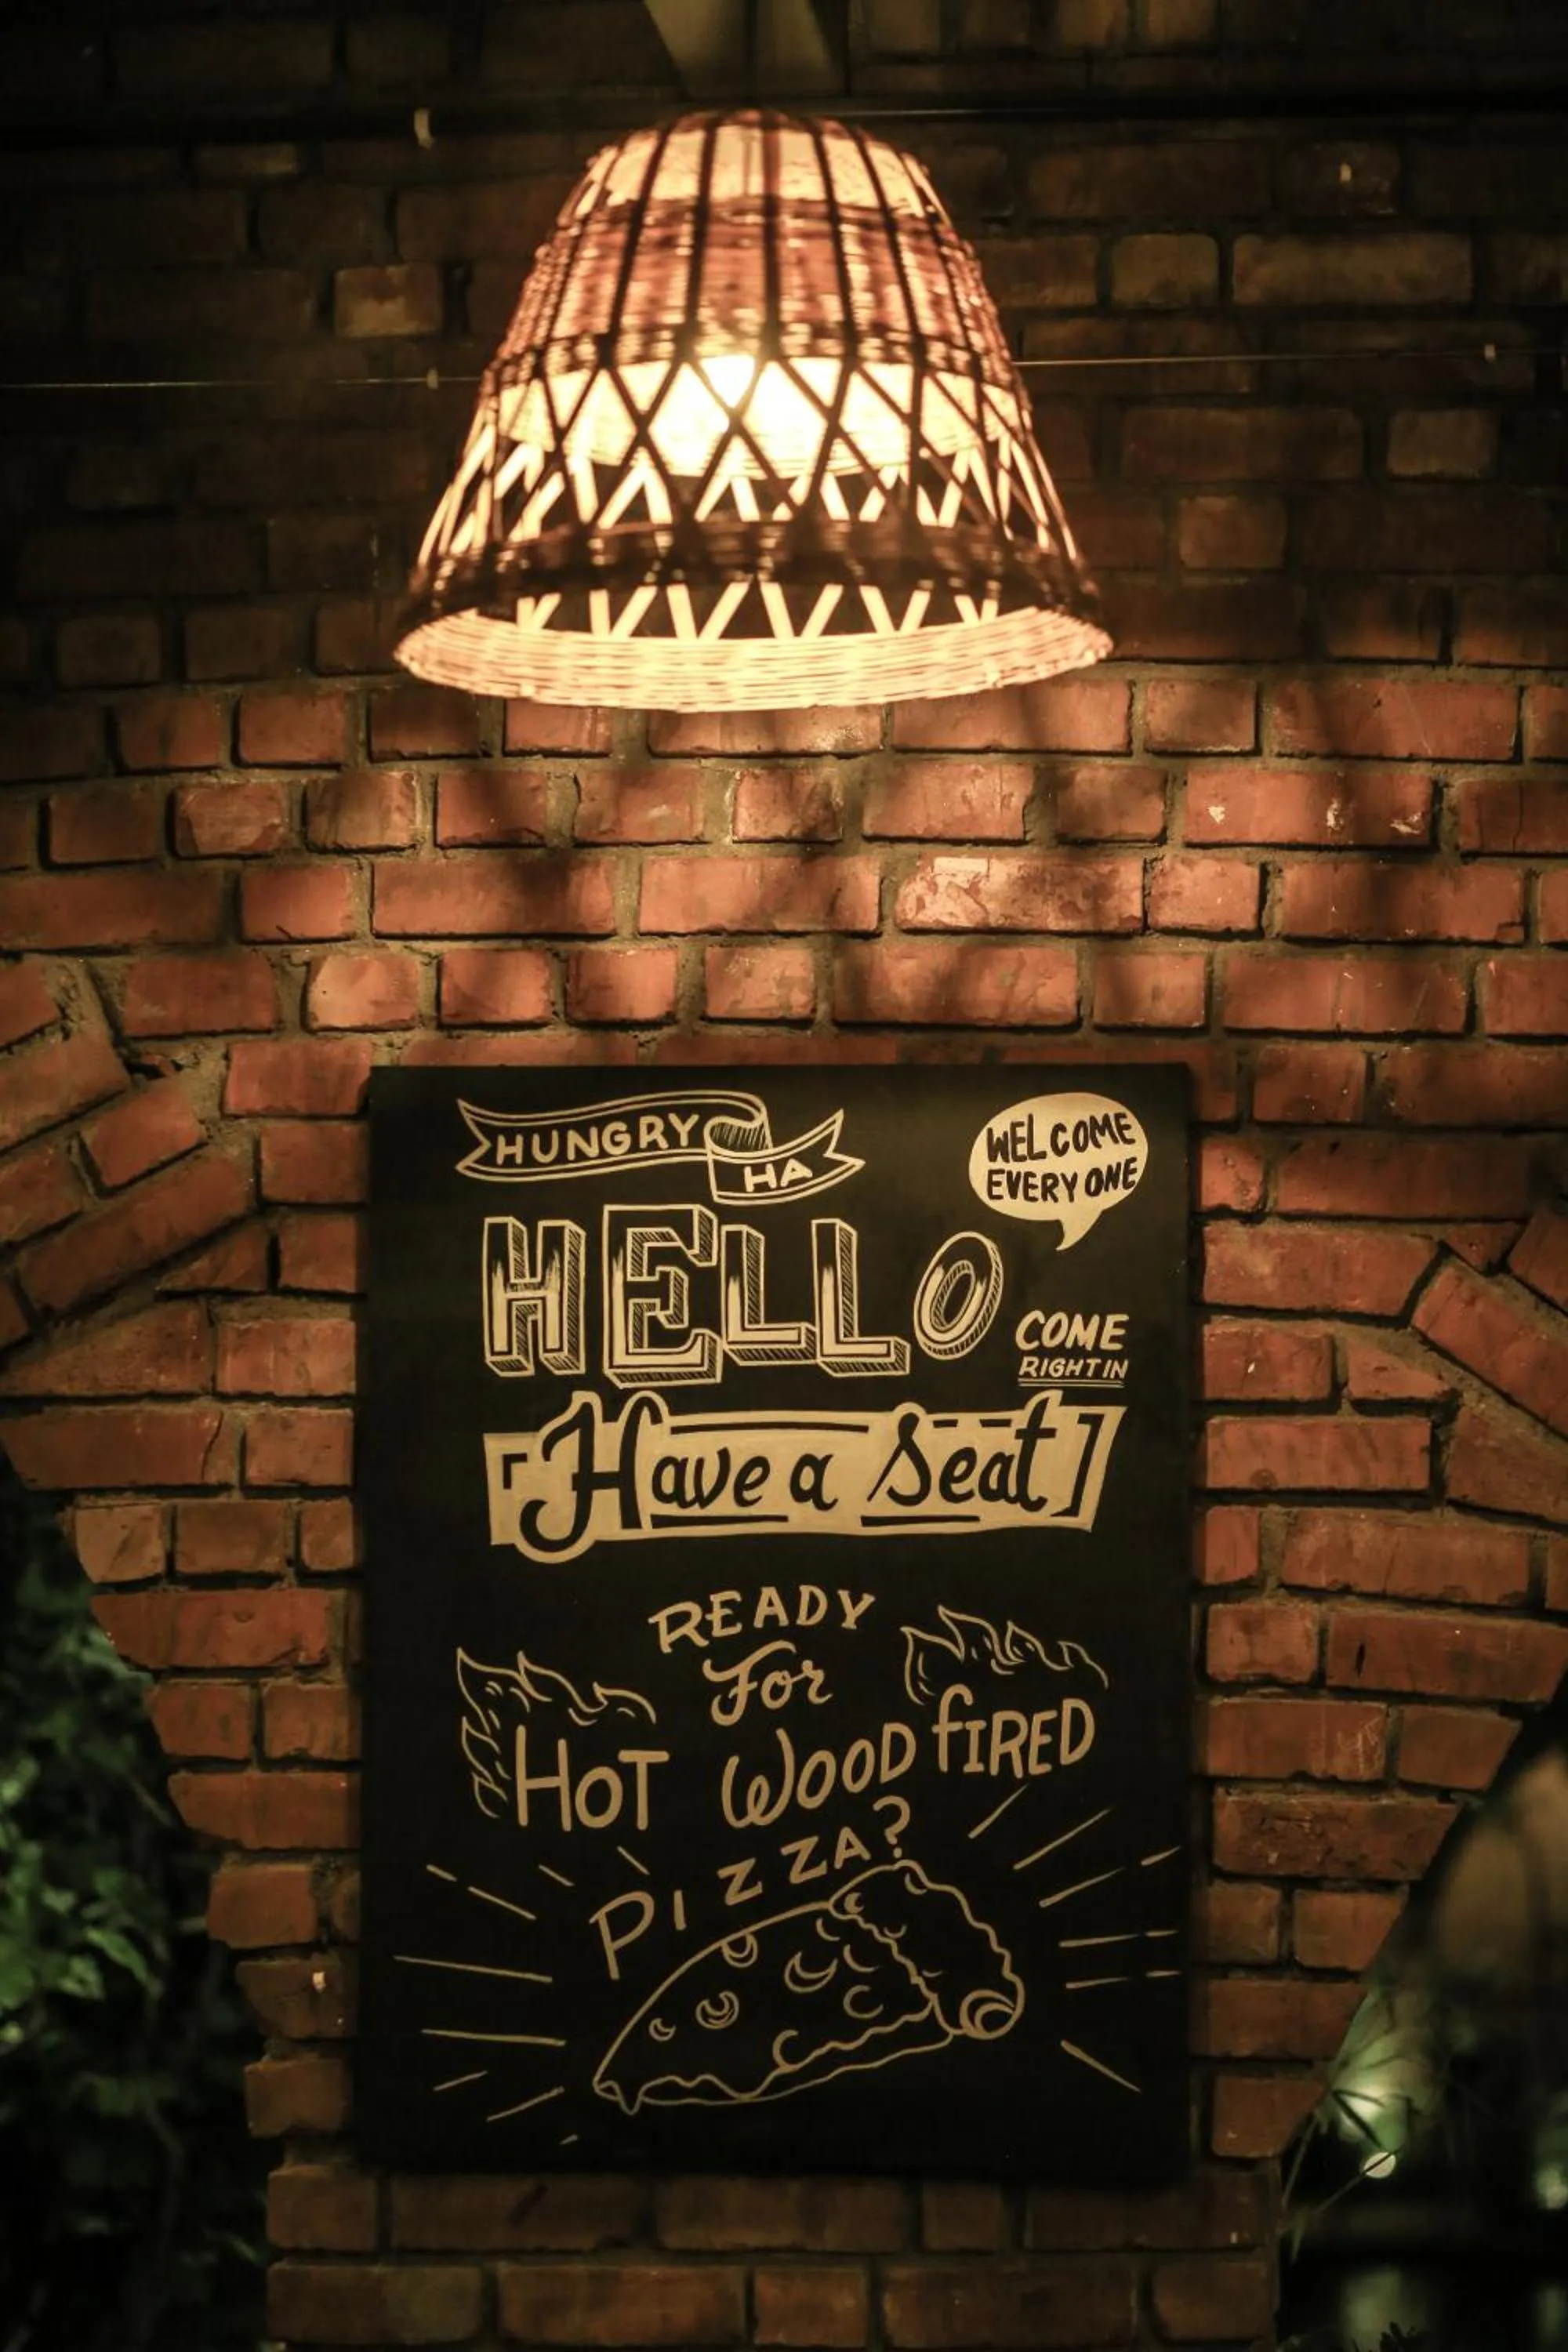 HUNGRY
HA
WELCOME
EVERYONE
HELLO
COME
RIGHT IN
Have a Seat
READY
For
HOT WOOD FIRED
PIZZA?